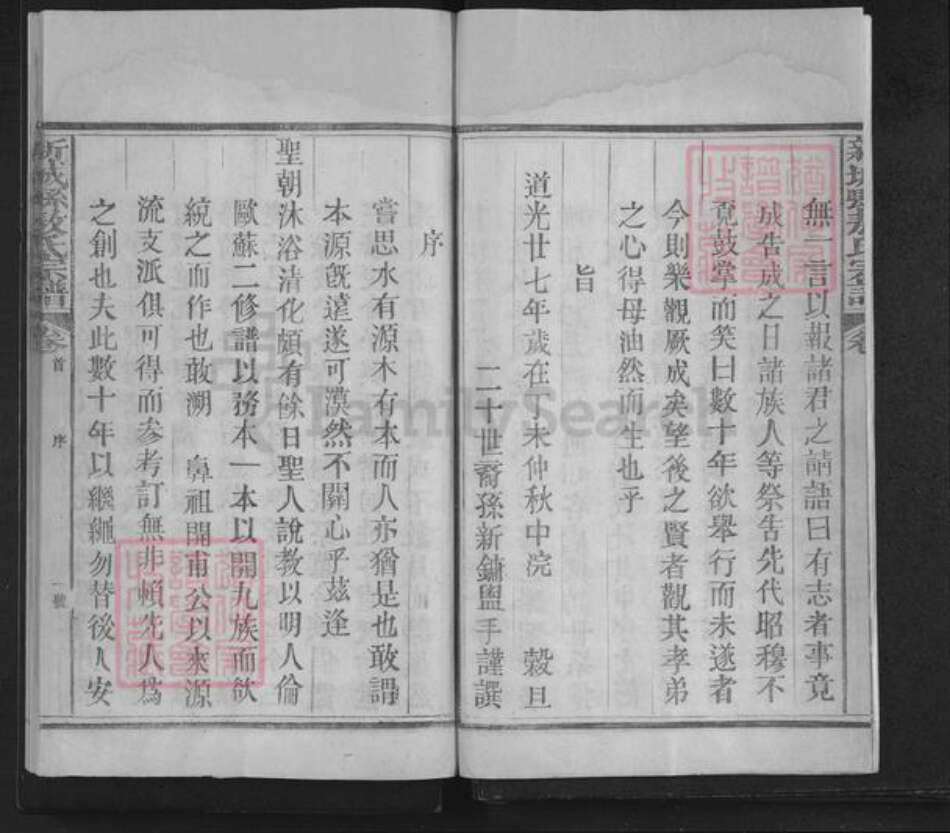 無一言以報諸君之請語曰有志者事竟
成告成之日諸族人等祭告先代昭穆不
竟鼓掌而笑曰數十年欲舉行而未遂者
今則樂觀厥成矣望後之賢者觀其孝弟
之心得毋油然而生也乎
旨
道光廿七年歲在丁未仲秋中浣 穀旦
二十世裔孫新鏞盥手謹譔
序
嘗思水有源木有本而人亦猶是也敢謂
本源既遠遂可漠然不關心乎茲逢
聖朝沐浴清化頗有餘日聖人說教以明人倫
歐蘇二修譜以務本一本以開九族而欲
統之而作也敢溯 鼻祖開甫公以來源
流支派俱可得而叅考訂無非賴先人爲
之創也夫此數十年以繼繩勿替後人安
新城縣敖氏宗譜 卷首 序 一號
FamilySearch